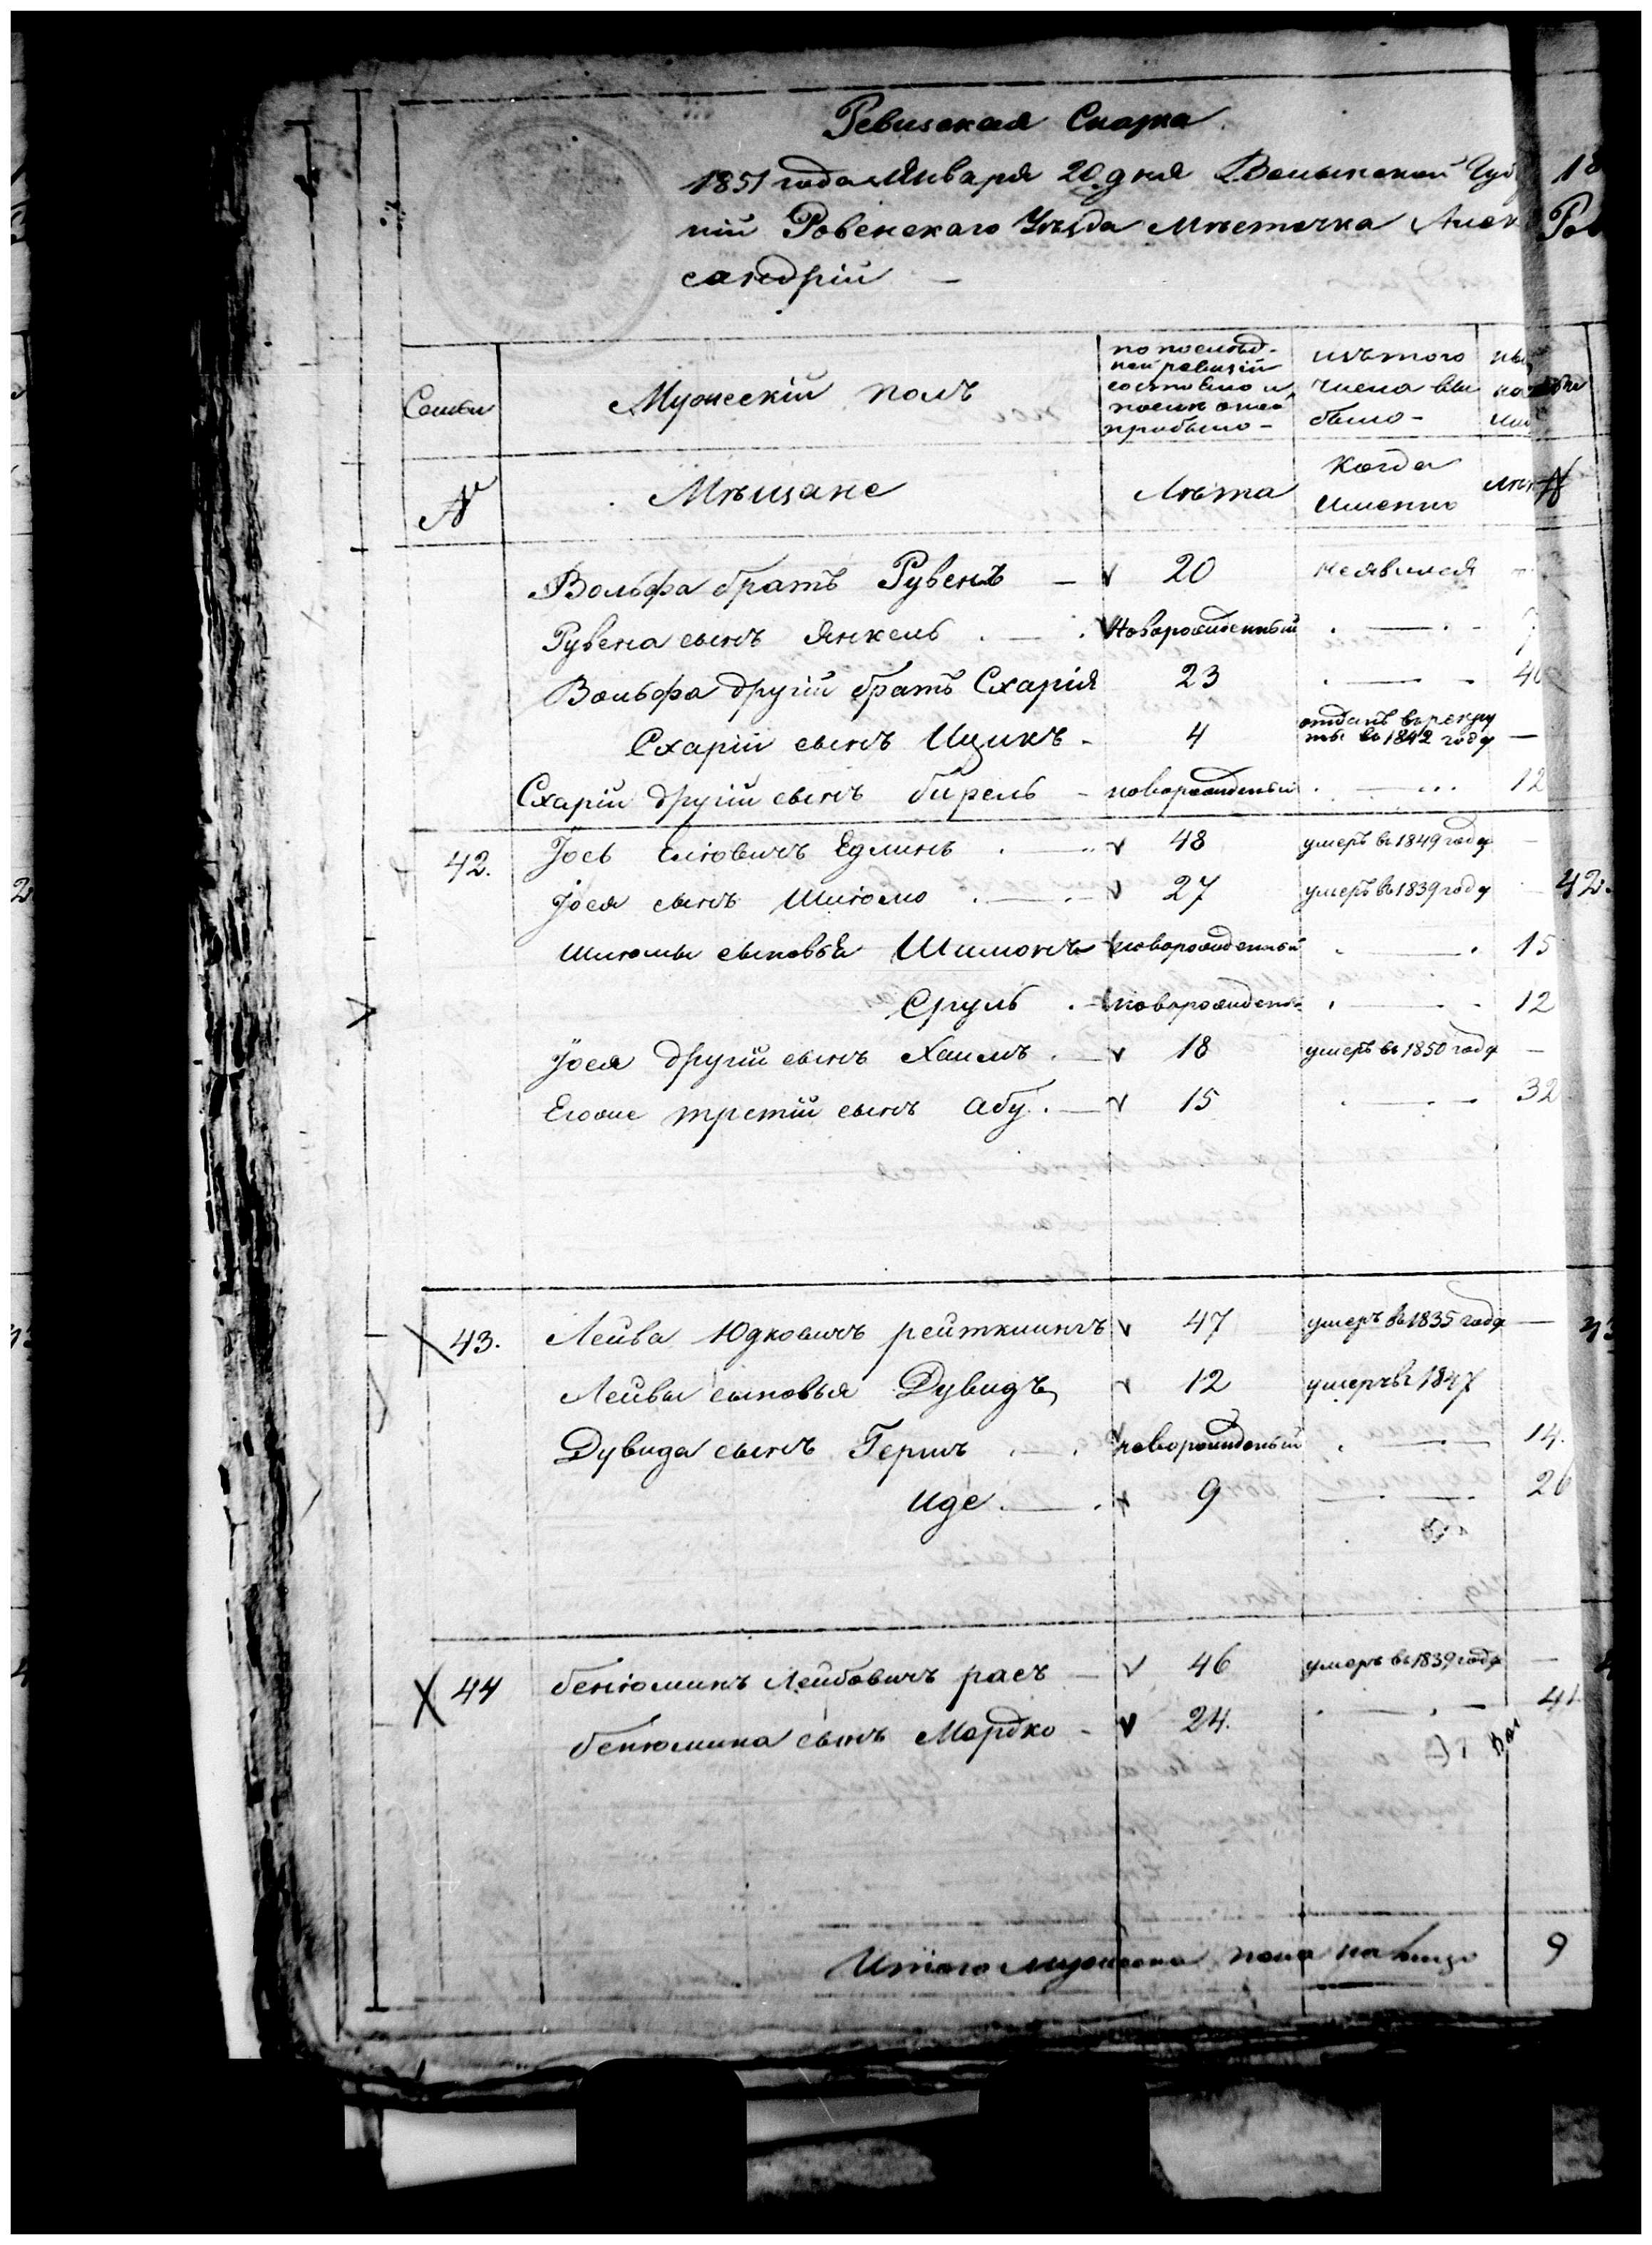 Ревизская Сказка
1851 года Января 20 дня Волынской Губ
ній Ровенского Уѣзда мѣстечка Алек
сандрій —
Семьи
Мужескій полъ
по послѣд-
ней ревизій
состояло и
послѣ оной
прибыло -
изъ того
числа вы
было -
№
Мѣщане
Лѣта
Когда
именно
Вольфа братъ Рувенъ — 20 неявился
Рувена сынъ Янкель . — . Новорожденный . — .
Вольфа другій братъ Схарія 23 . — . 40
Схарій сынъ Ицикъ - 4 отданъ въ рекру
ты въ 1842 году —
Схарій другій сынъ бирель - новорожденый . — . 12
42. Іось Еліовичъ Едлинъ . — . 48 умеръ въ 1849 году —
Іося сынъ Шліомо . — . 27 умеръ въ 1839 году 42.
Шліомы сыновья Шимонъ новорожденный . — . 15
Сруль . — новорожден . — . 12
Іося другій сынъ Хаимъ . — 18 умеръ въ 1850 году —
Егоже третій сынъ Абу . — 15 . — . 32
43. Лейба Юдковичъ рейткинъ 47 умеръ въ 1835 году —
Лейбы сыновья Дувидъ 12 умеръ въ 1847
Дувида сынъ Гершъ . — . новорожденый . — . 14.
Иде . — . 9 — . — 26
44 беніоминъ Лейбовичъ расъ — 46 умеръ въ 1839 году —
беніомина сынъ Мордко - 24. . — . — 41
Итого мужеска пола на лицо 9